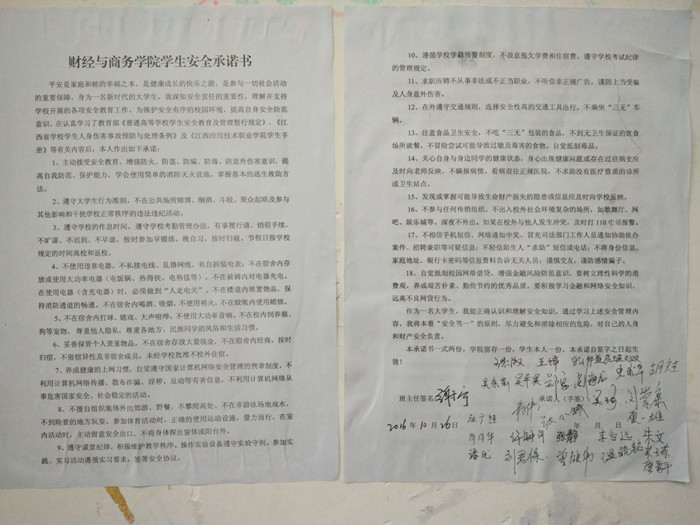 财经与商务学院学生安全承诺书
平安是家庭和睦的幸福之本，是健康成长的快乐之源，是参与一切社会活动
的重要保障。身为一名新时代的大学生，我深知安全责任的重要性，理解并支持
学校开展的各项安全教育工作。为维护安全有序的校园环境，提高自身安全防范
意识，在认真学习了教育部《普通高等学校学生安全教育及管理暂行规定》、《江
西省学校学生人身伤害事故预防与处理条例》及《江西应用技术职业学院学生手
册》等有关内容后，本人作出如下承诺：
1、主动接受安全教育，增强防火、防盗、防骗、防毒、防意外伤害意识，提
高自我防范、保护能力，学会使用简单的消防灭火设施，掌握基本的逃生救助方
法。
2、遵守大学生行为准则，不在公共场所赌博、酗酒、斗殴，聚众起哄及参与
其他影响和干扰学校正常秩序的违法违纪活动。
3、遵守学校的作息时间。遵守学校考勤管理办法，有事履行请、销假手续，
不旷课、不迟到、不早退，按时参加早锻炼、晚自习，按时归寝。节假日按学校
规定的时间离校和返校。
4、不使用违章电器，不私接电线、乱搭网线、私自拆装电表；不在宿舍内存
放或使用大功率电器（电饭锅、热得快、电热毯等）、不在被褥内对电器充电。
在使用电器（含充电器）时，必须做到“人走电关”。不在楼道内堆置物品，保
持消防通道的畅通。不在宿舍内喝酒、吸烟，不使用明火，不在蚊帐内使用蜡烛。
5、不在宿舍内打球、嬉戏、大声喧哗，不使用大功率音响，不在校内饲养猫、
狗等宠物。尊重他人隐私，尊重各地方、民族同学的风俗和生活习惯。
6、妥善保管个人贵重物品，不在宿舍存放大量现金，不在宿舍内经商，按时
归寝，不留宿异性及非宿舍成员，未经学校批准不校外住宿。
7、养成健康的上网习惯，自觉遵守国家计算机网络安全管理的规章制度，不
利用计算机网络传播、散布诈骗、淫秽、反动等有害信息，不利用计算机网络从
事危害国家安全、社会稳定的活动。
8、不擅自组织集体外出郊游、野餐、不攀爬高处、不在非游泳场地戏水，
不到险要的地方玩耍。参加体育活动时，正确的使用运动设施，量力而行。在室
内活动时，主动留意安全出口、不将身体探出窗体或阳台外。
9、遵守课堂纪律，积极维护教学秩序。操作实验设备遵守实验守则，参加实
践、实习活动遵循实习要求，签署安全协议。
10、遵循学校学籍预警制度，不故意拖欠学费和住宿费。遵守学校考试纪律
的管理规定。
11、求职应聘不从事非法或不正当职业，不听信非正规广告，谨防上当受骗
及人身意外伤害。
12、在外遵守交通规则，选择安全性高的交通工具出行，不乘坐“三无”车
辆。
13、注意食品卫生安全，不吃“三无”包装的食品，不到无卫生保证的饮食
场所就餐。不冒险尝试可能导致过敏及毒害的食物。自觉抵制毒品。
14、关心自身与身边同学的健康状态，身心出现健康问题或存在过往病史应
及时向老师反映，不瞒报病情。有病看前往正规医院，不求助没有医疗资质的诊所
或卫生站点。
15、发现或掌握可能导致生命财产损失的隐患或信息应及时向学校反映。
16、不参与任何传销组织，不出入校外社会环境复杂的场所，如歌舞厅、网
吧、娱乐城等，深夜不外出。如果在校外与他人发生冲突，及时打 110 电话报警。
17、不相信手机短信、网络通知中奖、冒充司法部门工作人员通知协助侦办
案件、招聘兼职等可疑信息；不轻信陌生人“求助”短信或电话；不将身份信息、
家庭地址、银行卡密码等信息资料告诉无关人员；谨慎交友、谨防感情骗子。
18、自觉抵制校园网络借贷，增强金融风险防范意识。要树立理性科学的消
费观，养成艰苦朴素、勤俭节约的优秀品质。要积极学习金融和网络安全知识，
远离不良网贷行为。
作为一名大学生，我能正确认识和理解安全知识，通过学习上述安全管理内
容，我将本着“安全第一”的原则，尽力避免和消除相应的危险，对自己的人身
和财产安全负责。
本承诺书一式两份，学院留存一份，学生本人一份。本承诺自签字之日起生
效！
班主任签名： 承诺人（手签）：
2016年10月26日 年 月 日